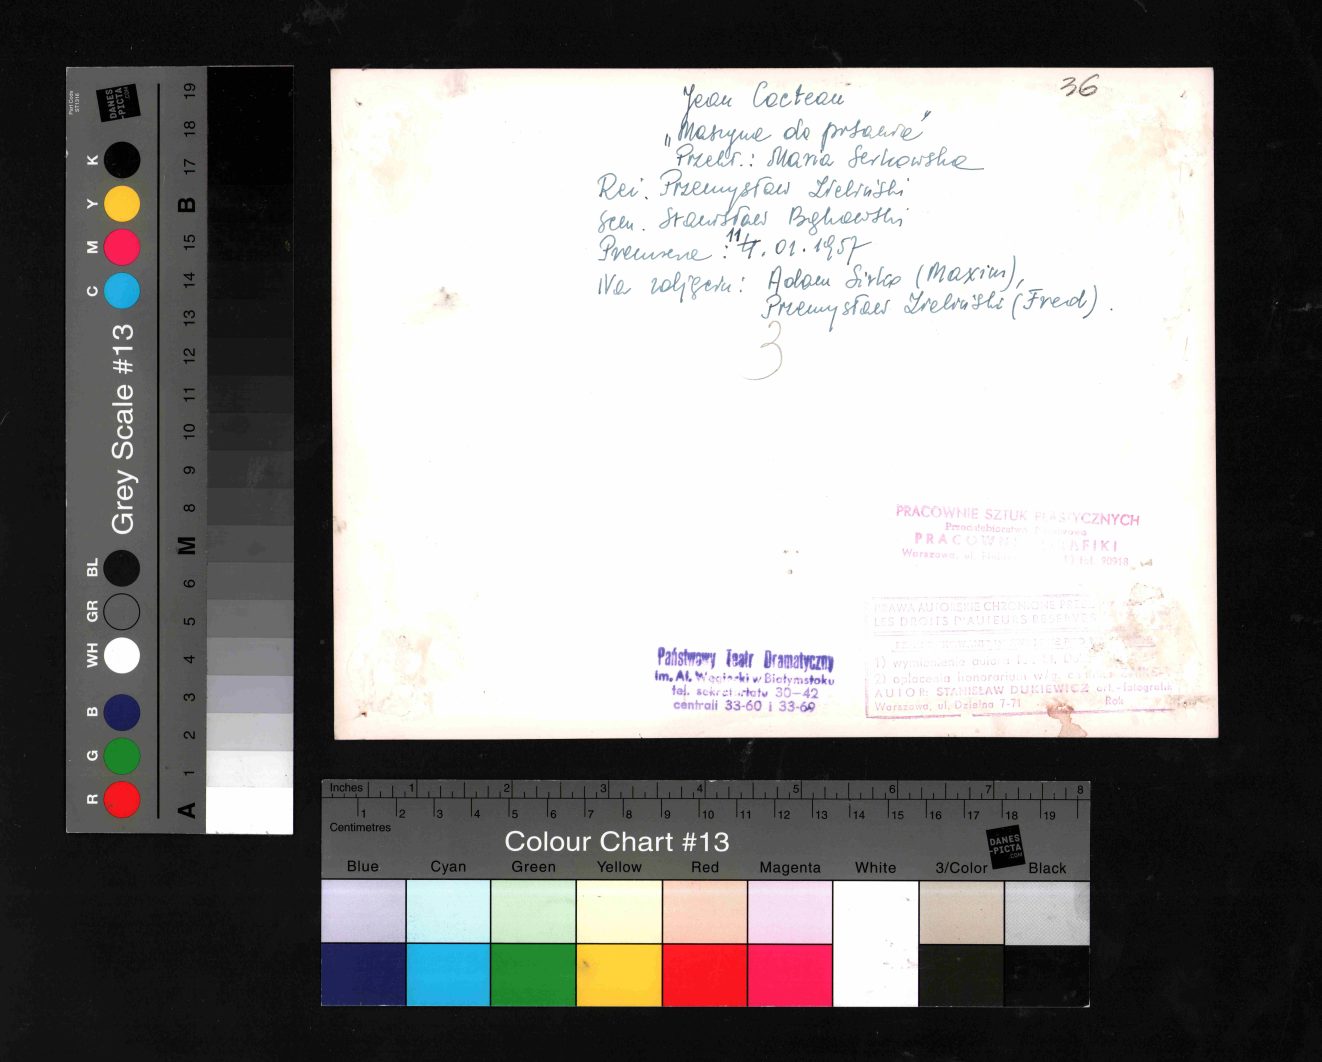 36
Jean Cocteau
„Maszyna do pisania”
Przekł.: Maria Serkowska
Reż. Przemysław Zieliński
Scen. Stanisław Bąkowski
Premiera : 11. 01. 1957
Na zdjęciu: Adam Sirko (Maxim),
Przemysław Zieliński (Fred).
3
PRACOWNIE SZTUK PLASTYCZNYCH
Przedsiębiorstwo
Warszawa, ul. tel. 90918
PRAWA AUTORSKIE CHRONIONE
LES DROITS D'AUTEURS RESERVES
1) wymienienie autora
2) opłacenia honorarium w/g.
AUTOR: STANISŁAW DUKIEWICZ art.-fotografik
Warszawa, ul. Dzielna 7-71 Rok
Państwowy Teatr Dramatyczny
im. Al. Węgierki w Białymstoku
tel. sekretariatu 30-42
centrali 33-60 i 33-69
Part Code
ST1316
DANES
-PICTA
.COM
Grey Scale #13
R G B WH GR BL C M Y K
A 1 2 3 4 5 6 M 8 9 10 11 12 13 14 15 B 17 18 19
Inches 1 2 3 4 5 6 7 8
1 2 3 4 5 6 7 8 9 10 11 12 13 14 15 16 17 18 19
Centimetres
Colour Chart #13
DANES
-PICTA
.COM
Blue Cyan Green Yellow Red Magenta White 3/Color Black